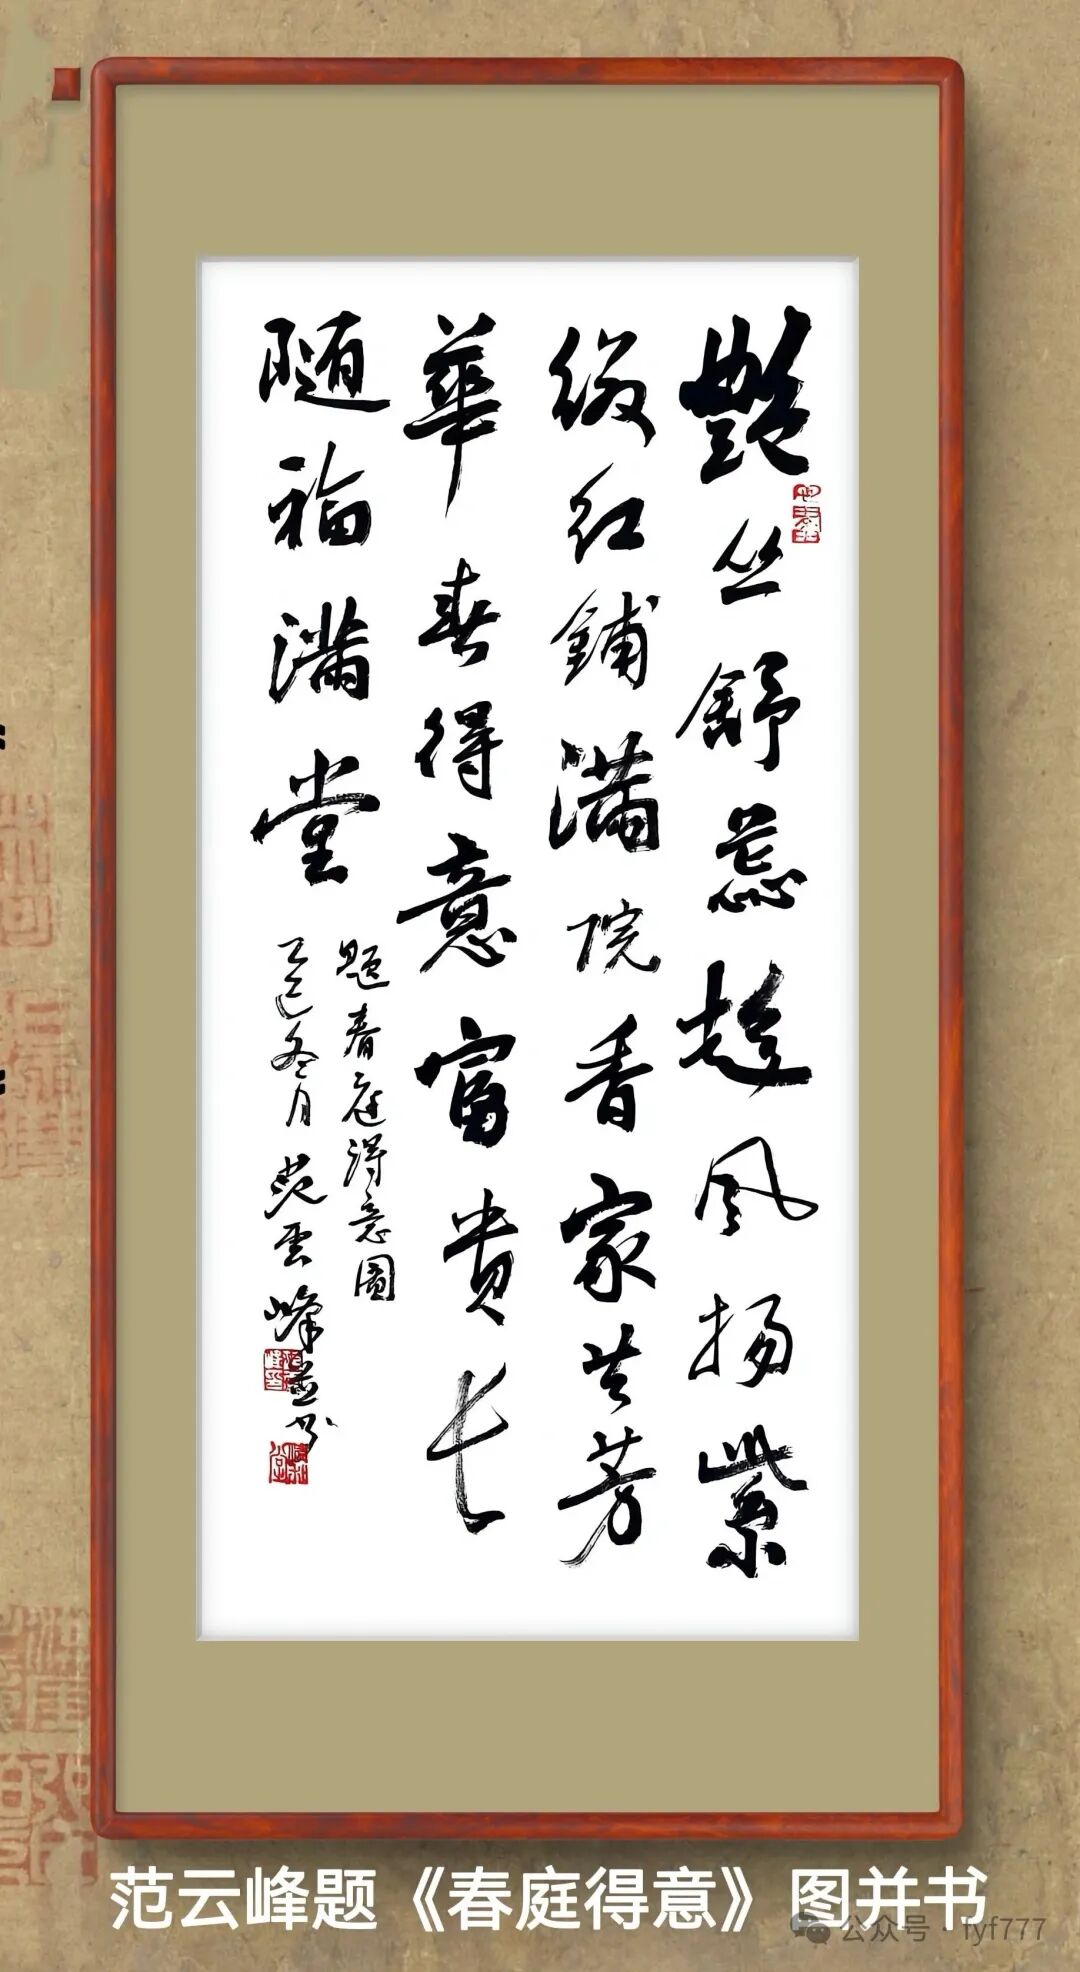 艷丛舒蕊趁风扬紫
缀红铺满院香家共芳
華春得意富贵长
随福满堂
题春庭得意图
乙巳冬月范云峰并书
范云峰题《春庭得意》图并书
公众号·fyf777